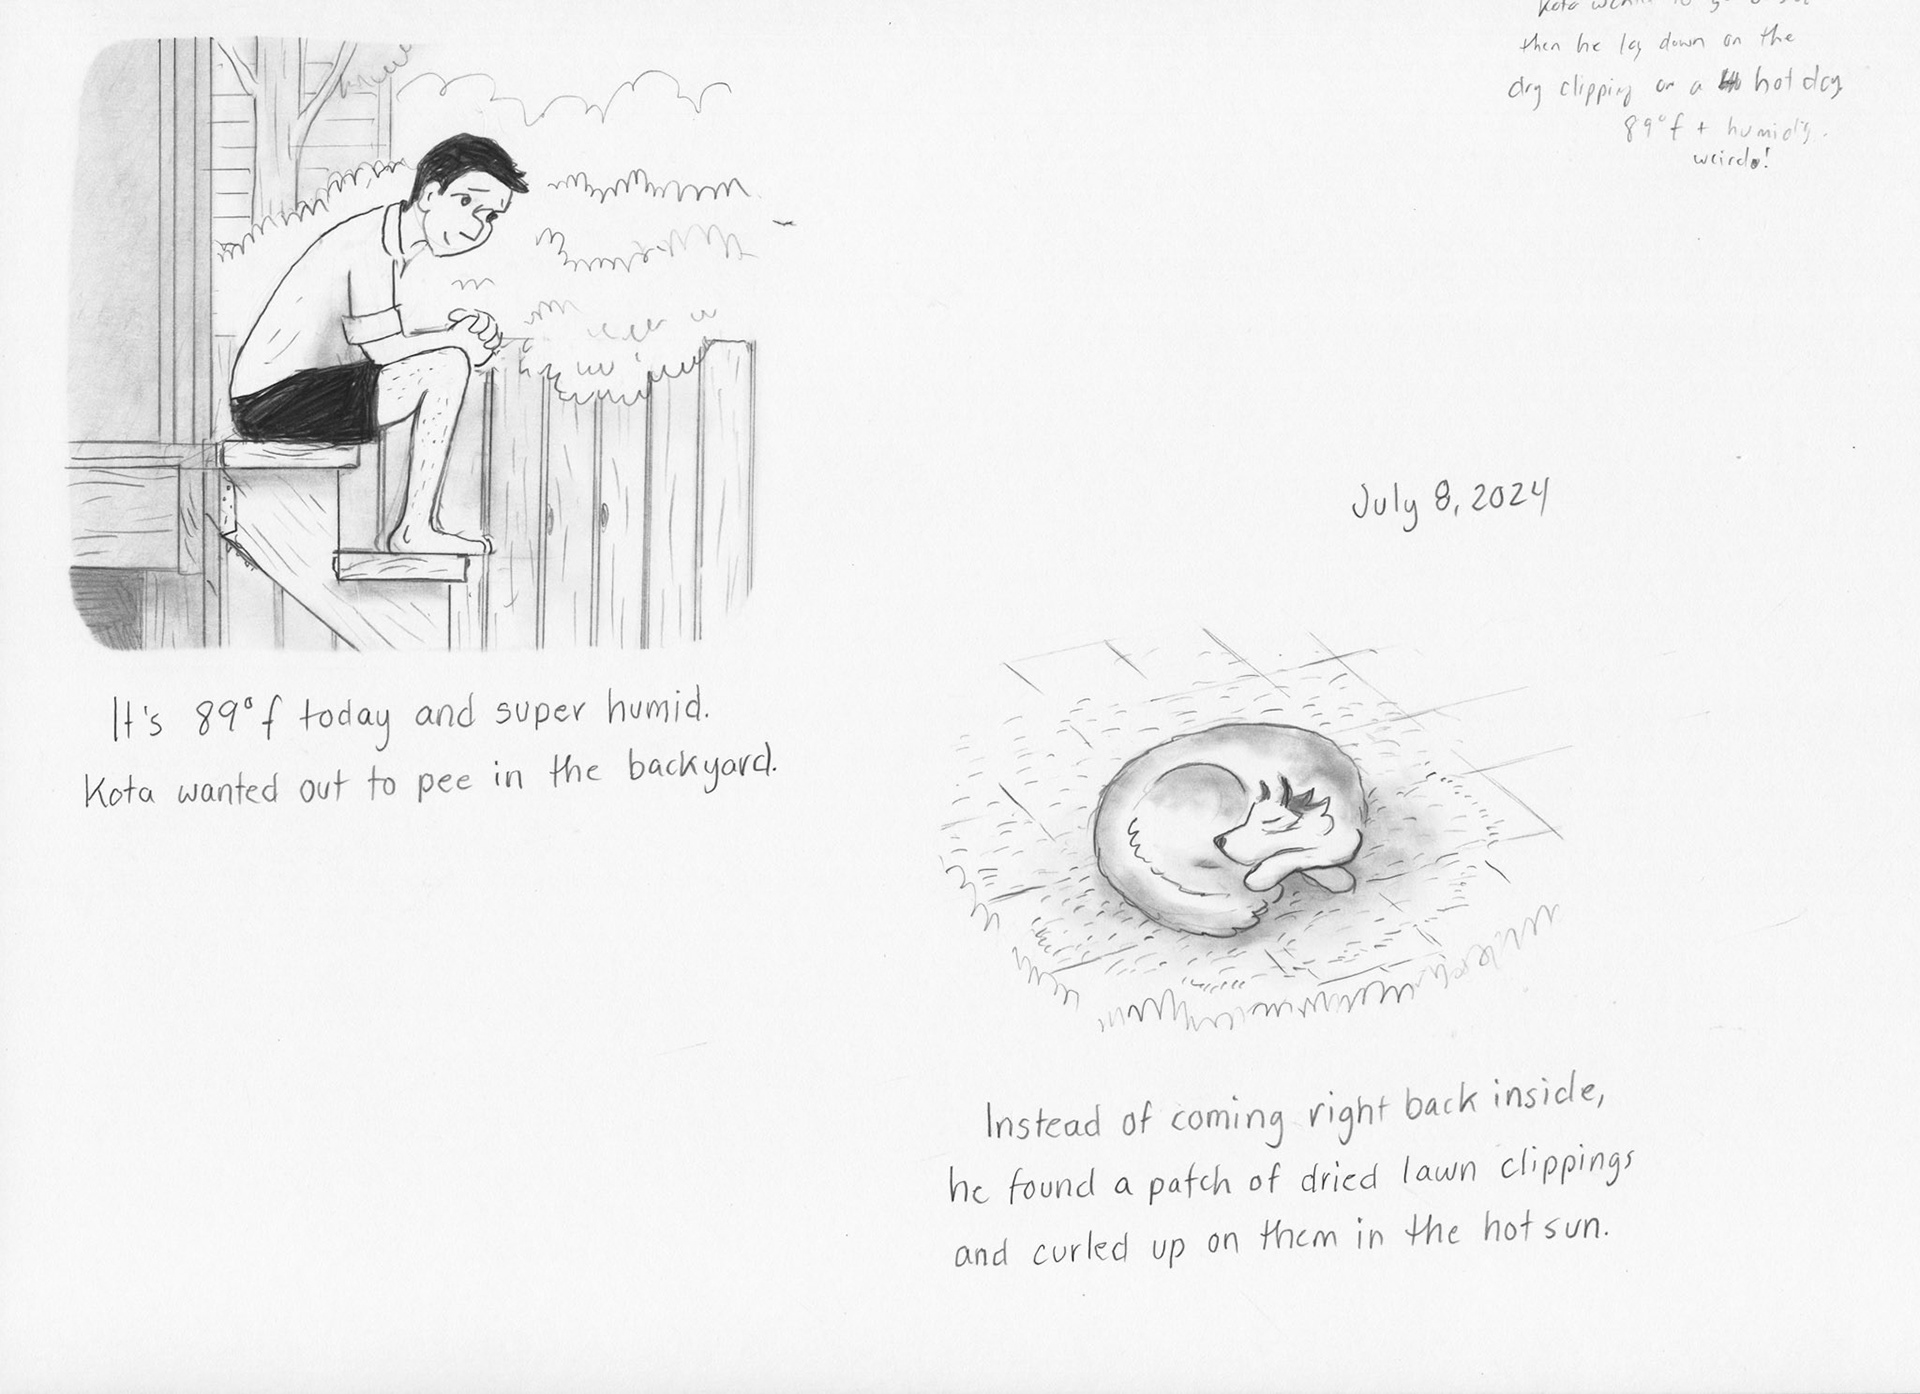 Kota
then he lay down on the
dry clipping on a hot day
89°f + humid
weirdo!
July 8, 2024
It's 89°f today and super humid.
Kota wanted out to pee in the backyard.
Instead of coming right back inside,
he found a patch of dried lawn clippings
and curled up on them in the hot sun.